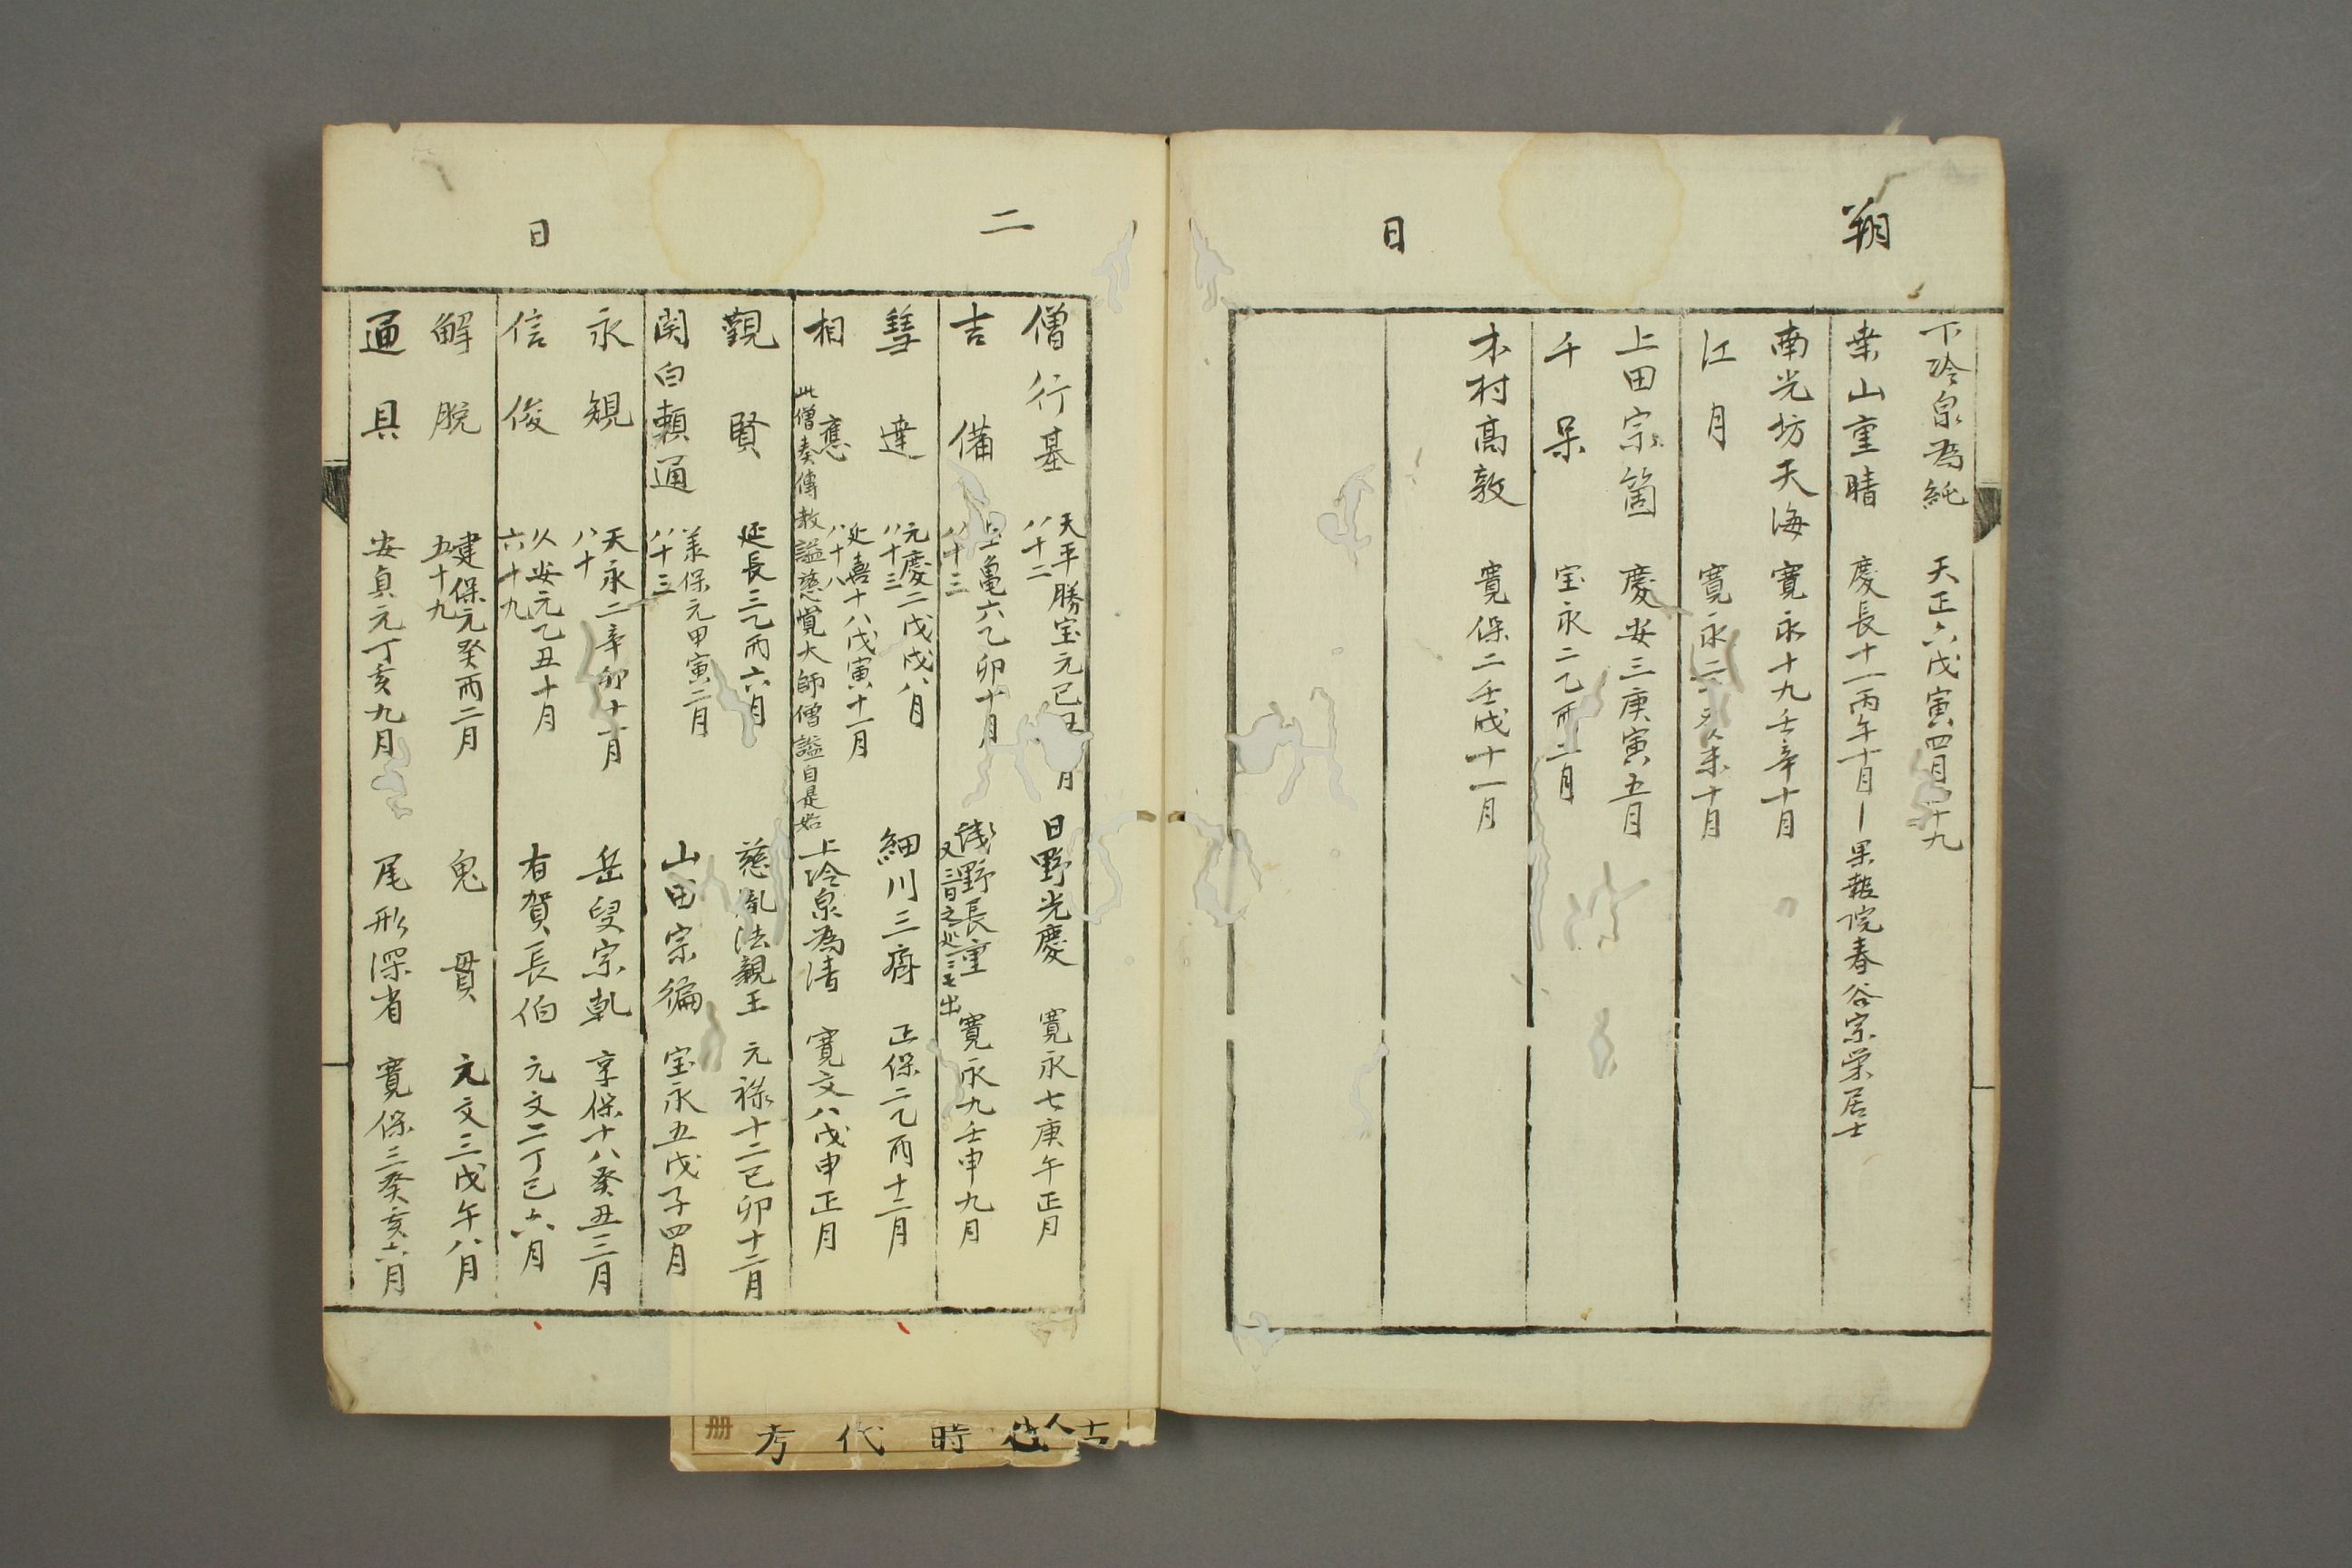 朔日
下冷泉為純 天正六戊寅四月 十九
桒山重晴 慶長十一丙午十月 果報院春谷宗栄居士
南光坊天海 寛永十九壬辛十月
江月 寛永二十癸未十月
上田宗箇 慶安三庚寅五月
千呆 宝永二乙酉二月
木村高敦 寛保二壬戌十一月
二日
僧行基 天平勝宝元己丑 月 八十二 日野光慶 寛永七庚午正月
吉備 宝亀六乙卯十月 八十三 浅野長重 寛永九壬申九月
又三日之処ニモ出
彗達 元慶二戊戌八月 八十三 細川三斎 正保二乙酉十二月
相應 延喜十八戊寅十一月 八十八 上冷泉為清 寛文八戊申正月
此僧奏傳教謚慈覚大師僧謚自是始
觀賢 延長三乙酉六月 慈胤法親王 元禄十二己卯十二月
関白頼通 義保元甲寅二月 八十三 山田宗徧 宝永五戊子四月
永観 天永二辛卯十一月 八十 岳叟宗乾 享保十八癸丑三月
信俊 久安元乙丑十月 六十九 有賀長伯 元文二丁巳六月
解脱 建保元癸酉二月 五十九 鬼貫 元文三戊午八月
通具 安貞元丁亥九月 尾形深省 寛保三癸亥六月
古人 時代考
册